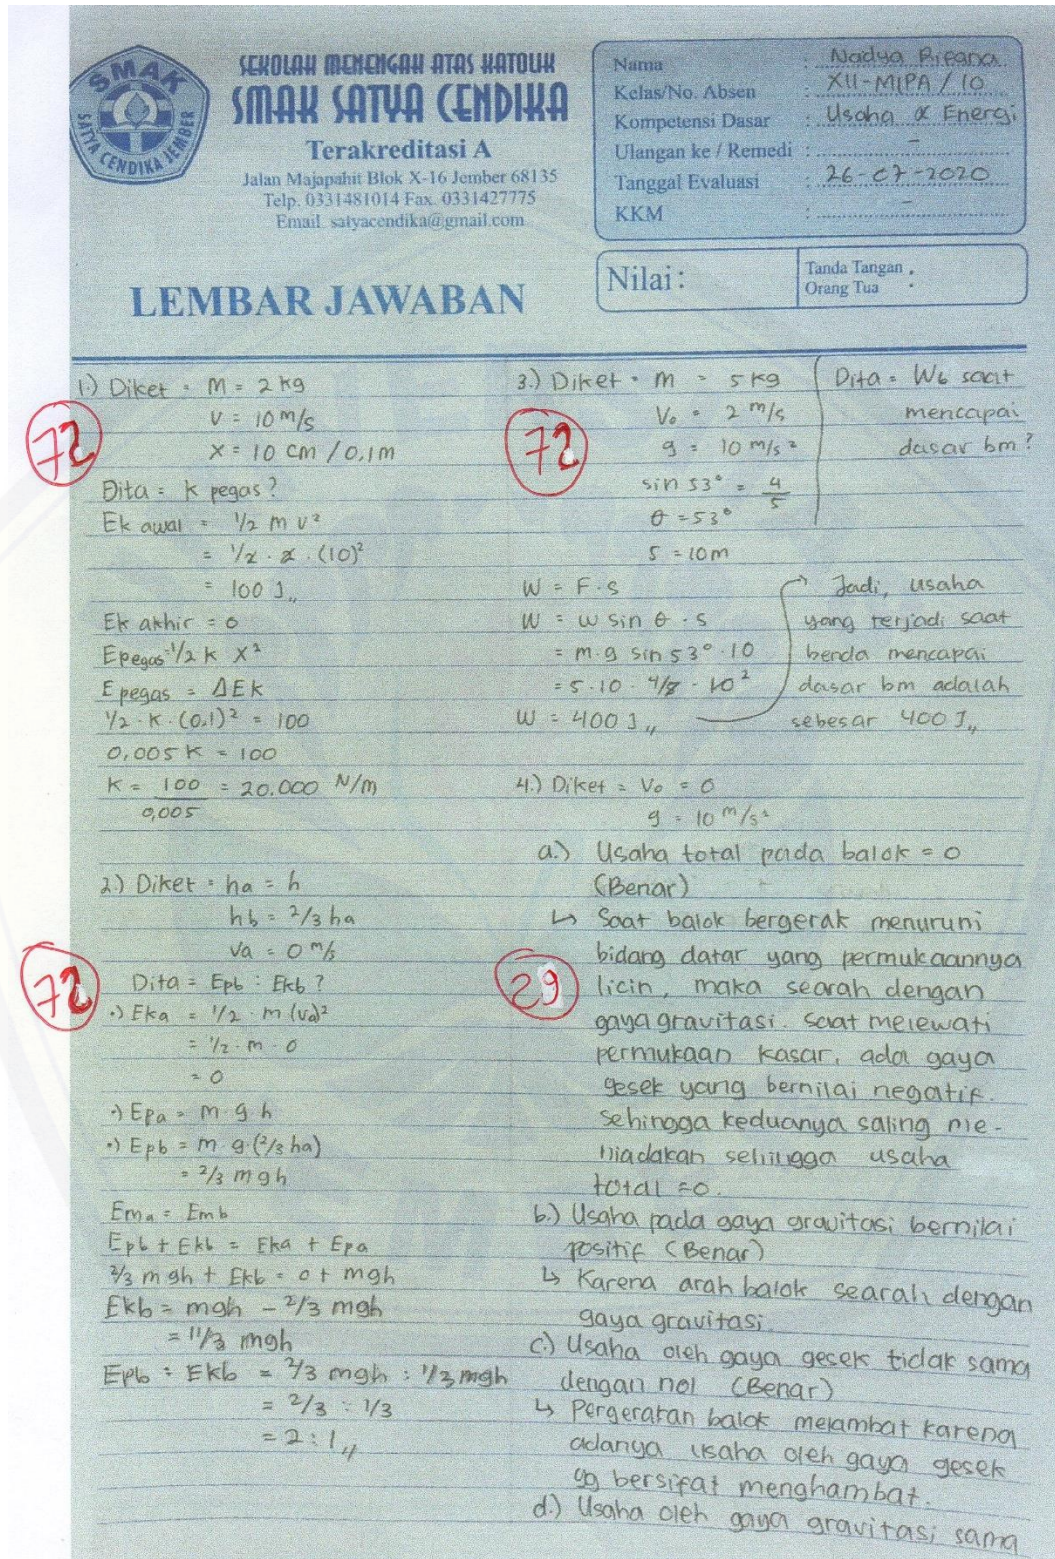 SMAK
SATYA CENDIKA JEMBER
SEKOLAH MENENGAH ATAS KATOLIK
SMAK SATYA CENDIKA
Terakreditasi A
Jalan Majapahit Blok X-16 Jember 68135
Telp. 0331481014 Fax. 0331427775
Email satyacendika@gmail.com
LEMBAR JAWABAN
Nama : Nadya
Kelas/No. Absen : XII-MIPA / 10
Kompetensi Dasar : Usaha & Energi
Ulangan ke / Remedi : -
Tanggal Evaluasi : 26-07-2020
KKM : -
Nilai :
Tanda Tangan :
Orang Tua
1.) Diket = M = 2 kg
V = 10 m/s
X = 10 cm / 0,1 m
72
Dita = k pegas?
Ek awal = 1/2 m v²
= 1/2 . 2 . (10)²
= 100 J,,
Ek akhir = 0
Epegas = 1/2 k x²
Epegas = ΔEk
1/2 . k . (0,1)² = 100
0,005 k = 100
k = 100 = 20.000 N/m
0,005
2.) Diket = ha = h
hb = 2/3 ha
va = 0 m/s
72
Dita = Epb : Ekb ?
•) Eka = 1/2 . m (va)²
= 1/2 . m . 0
= 0
•) Epa = m . g . h
•) Epb = m . g . (2/3 ha)
= 2/3 mgh
Ema = Emb
Epb + Ekb = Eka + Epa
2/3 mgh + Ekb = 0 + mgh
Ekb = mgh - 2/3 mgh
= 1/3 mgh
Epb : Ekb = 2/3 mgh : 1/3 mgh
= 2/3 : 1/3
= 2 : 1,,
3.) Diket = m = 5 kg
Vo = 2 m/s
g = 10 m/s²
72
sin 53° = 4/5
θ = 53°
s = 10 m
Dita = Wb saat
mencapai
dasar bm?
W = F . s
W = w sin θ . s
= m . g sin 53° . 10
= 5 . 10 . 4/5 . 10 2
W = 400 J,,
→ Jadi, usaha
yang terjadi saat
benda mencapai
dasar bm adalah
sebesar 400 J,,
4.) Diket = Vo = 0
g = 10 m/s²
a.) Usaha total pada balok = 0
(Benar)
↳ Saat balok bergerak menuruni
bidang datar yang permukaannya
29
licin, maka searah dengan
gaya gravitasi. saat melewati
permukaan kasar, ada gaya
gesek yang bernilai negatif.
sehingga keduanya saling me-
niadakan sehingga usaha
total = 0.
b.) Usaha pada gaya gravitasi bernilai
positif (Benar)
↳ Karena arah balok searah dengan
gaya gravitasi.
c.) Usaha oleh gaya gesek tidak sama
dengan nol (Benar)
↳ Pergerakan balok melambat karena
adanya usaha oleh gaya gesek
yg bersifat menghambat.
d.) Usaha oleh gaya gravitasi sama